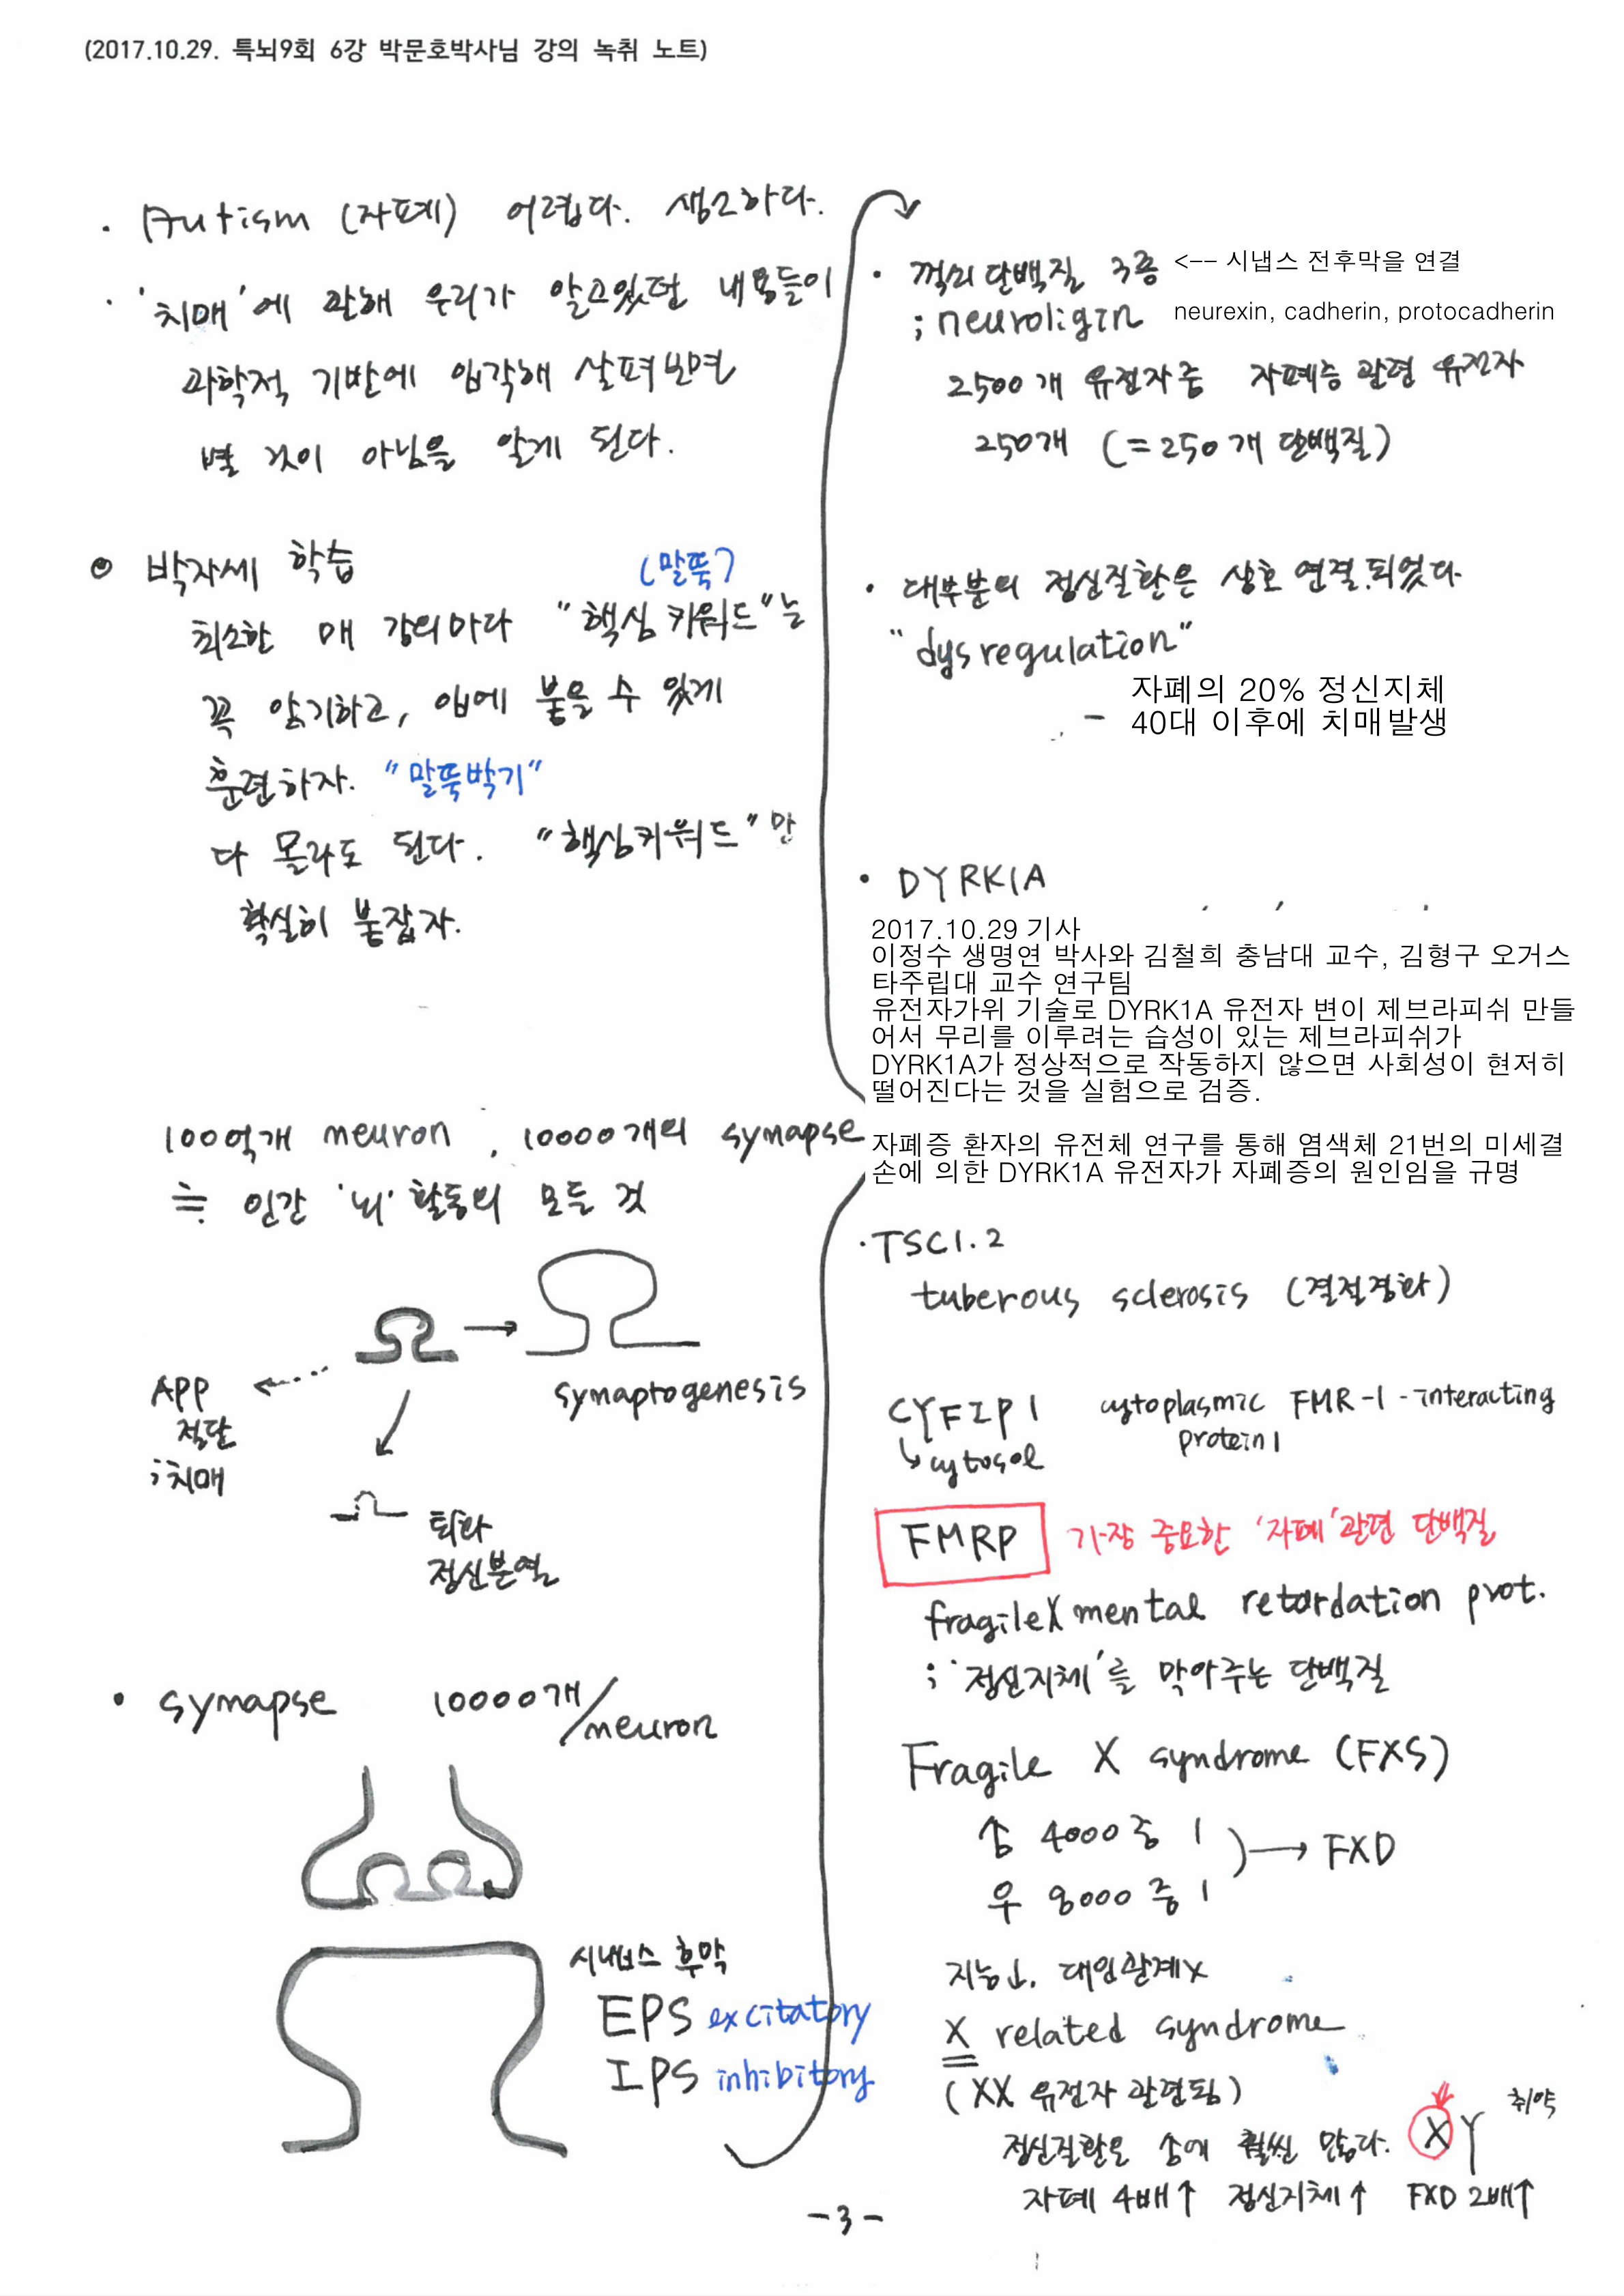 (2017.10.29. 특뇌9회 6강 박문호박사님 강의 녹취 노트)
· Autism (자폐) 어렵다. 생소하다.
· '치매'에 관해 우리가 알고있던 내용들이
과학적 기반에 입각해 살펴보면
별 것이 아님을 알게 된다.
⊙ 박자세 학습
(말뚝?)
최소한 매 강의마다 "핵심 키워드"는
꼭 암기하고, 입에 붙을 수 있게
훈련하자. "말뚝박기"
다 몰라도 된다. "핵심키워드"만
확실히 붙잡자.
100억개 neuron, 10000개의 synapse
≒ 인간 '뇌' 활동의 모든 것
APP
절단
; 치매
synaptogenesis
퇴화
정신분열
· synapse 10000개/neuron
시냅스 후막
EPS excitatory
IPS inhibitory
· 꺽쇠단백질 3종 <-- 시냅스 전후막을 연결
; neuroligin neurexin, cadherin, protocadherin
2500개 유전자중 자폐증 관련 유전자
250개 (=250개 단백질)
· 대부분의 정신질환은 상호 연결되었다.
"dysregulation"
- 자폐의 20% 정신지체
40대 이후에 치매발생
· DYRK1A
2017.10.29 기사
이정수 생명연 박사와 김철희 충남대 교수, 김형구 오거스
타주립대 교수 연구팀
유전자가위 기술로 DYRK1A 유전자 변이 제브라피쉬 만들
어서 무리를 이루려는 습성이 있는 제브라피쉬가
DYRK1A가 정상적으로 작동하지 않으면 사회성이 현저히
떨어진다는 것을 실험으로 검증.
자폐증 환자의 유전체 연구를 통해 염색체 21번의 미세결
손에 의한 DYRK1A 유전자가 자폐증의 원인임을 규명
· TSC1.2
tuberous sclerosis (결절경화)
CYFIP1 cytoplasmic FMR-1-interacting
protein1
↳ cytosol
FMRP 가장 중요한 '자폐'관련 단백질
fragileX mental retardation prot.
; '정신지체'를 막아주는 단백질
Fragile X syndrome (FXS)
♂ 4000중 1
♀ 8000중 1
) → FXD
지능↓, 대인관계x
X related syndrome
(XX 유전자 관련됨)
정신질환은 ♂에 훨씬 많다. XY 취약
자폐 4배↑ 정신지체↑ FXD 2배↑
-3-